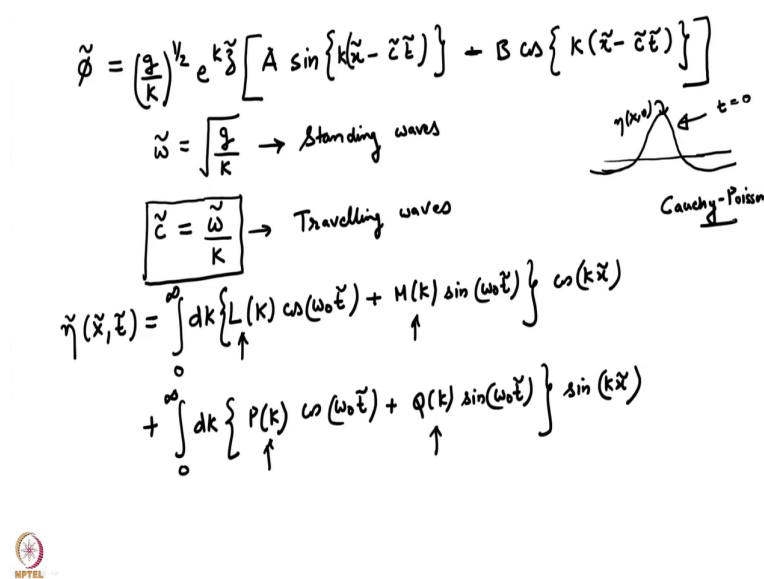 φ̃ = (g/k)^{1/2} e^{kz̃} [ A sin{k(x̃ - c̃t̃)} - B cos{k(x̃ - c̃t̃)} ]
ω̃ = √(g/k) → Standing waves
η(x,0)
t=0
Cauchy-Poisson
c̃ = ω̃/k → Travelling waves
η̃(x̃,t̃) = ∫₀^∞ dk {L(k) cos(ω₀t̃) + M(k) sin(ω₀t̃)} cos(kx̃)
+ ∫₀^∞ dk {P(k) cos(ω₀t̃) + Q(k) sin(ω₀t̃)} sin(kx̃)
NPTEL